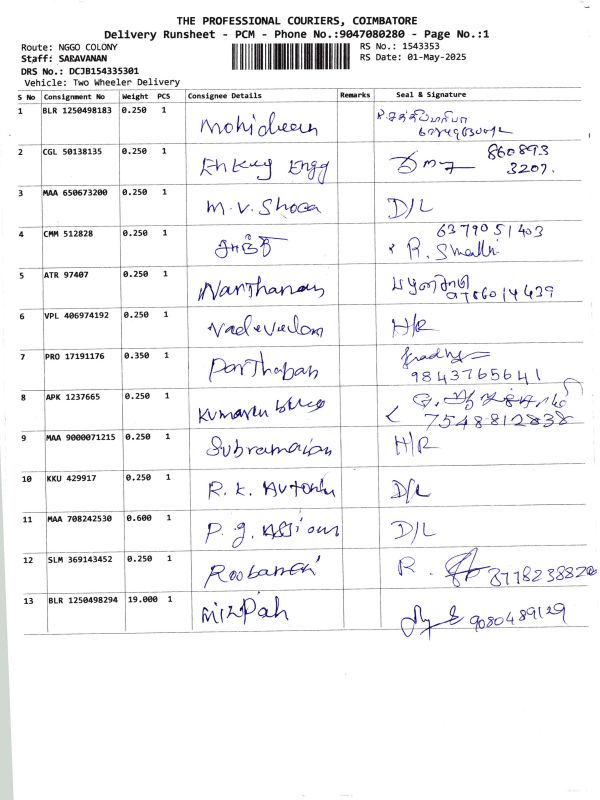 THE PROFESSIONAL COURIERS, COIMBATORE
Delivery Runsheet - PCM - Phone No.:9047080280 - Page No.:1
Route: NGGO COLONY
RS No.: 1543353
Staff: SARAVANAN
RS Date: 01-May-2025
DRS No.: DCJB154335301
Vehicle: Two Wheeler Delivery
S No Consignment No Weight PCS Consignee Details Remarks Seal & Signature
1 BLR 1250498183 0.250 1 Mohideen
2 CGL 50138135 0.250 1 Engg 860893
3207.
3 MAA 650673200 0.250 1 M.V. Shoca D/L
4 CMM 512828 0.250 1 6379051403
R. Smathi
5 ATR 97407 0.250 1 Nanthanan
6 VPL 406974192 0.250 1 Vadivelan H/R
7 PRO 17191176 0.350 1 Parthaban
9843765641
8 APK 1237665 0.250 1 Kumaran
7548812838
9 MAA 9000071215 0.250 1 Subramaian H/R
10 KKU 429917 0.250 1 R.K. D/L
11 MAA 708242530 0.600 1 P.G. D/L
12 SLM 369143452 0.250 1 R. 8778238820
13 BLR 1250498294 19.000 1 Mizpah 9080489129